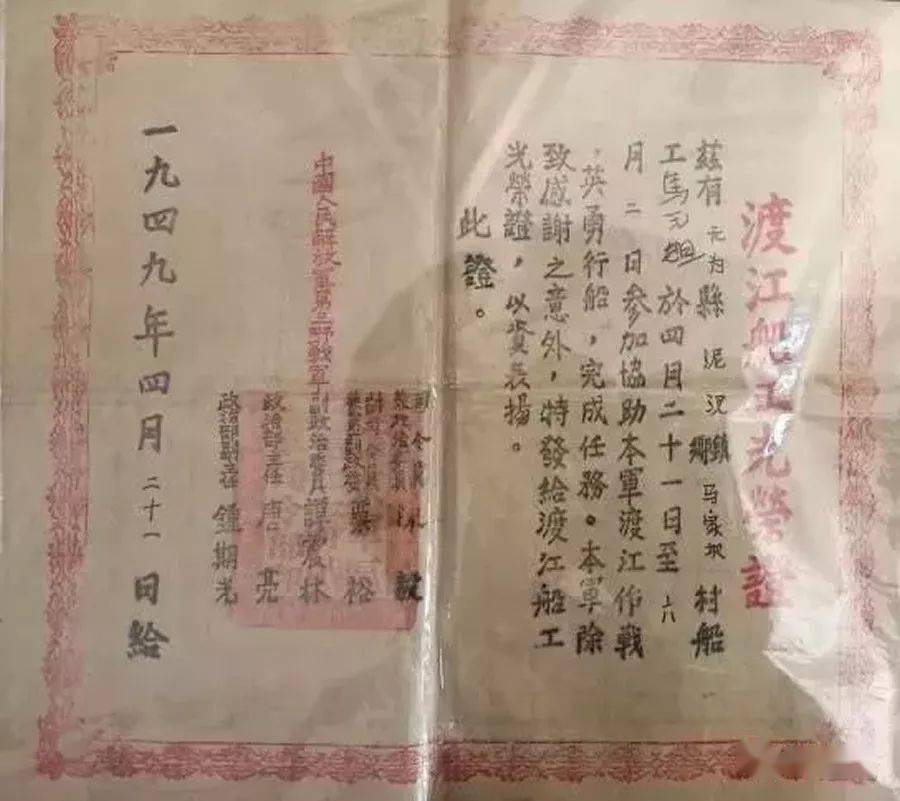 渡江船工光榮證
茲有 元为 縣 泥汊 鎮鄉 马家坝 村船
工 馬元 於四月二十一日至 六
月 二 日參加協助本軍渡江作戰
，英勇行船，完成任務。本軍除
致感謝之意外，特發給渡江船工
光榮證，以資表揚。
此證。
中國人民解放軍第三野戰軍
司令員
兼政治委員 陳 毅
粟 裕
副政治委員 譚震林
政治部主任 唐 亮
政治部副主任 鍾期光
一九四九年四月 二十一 日給